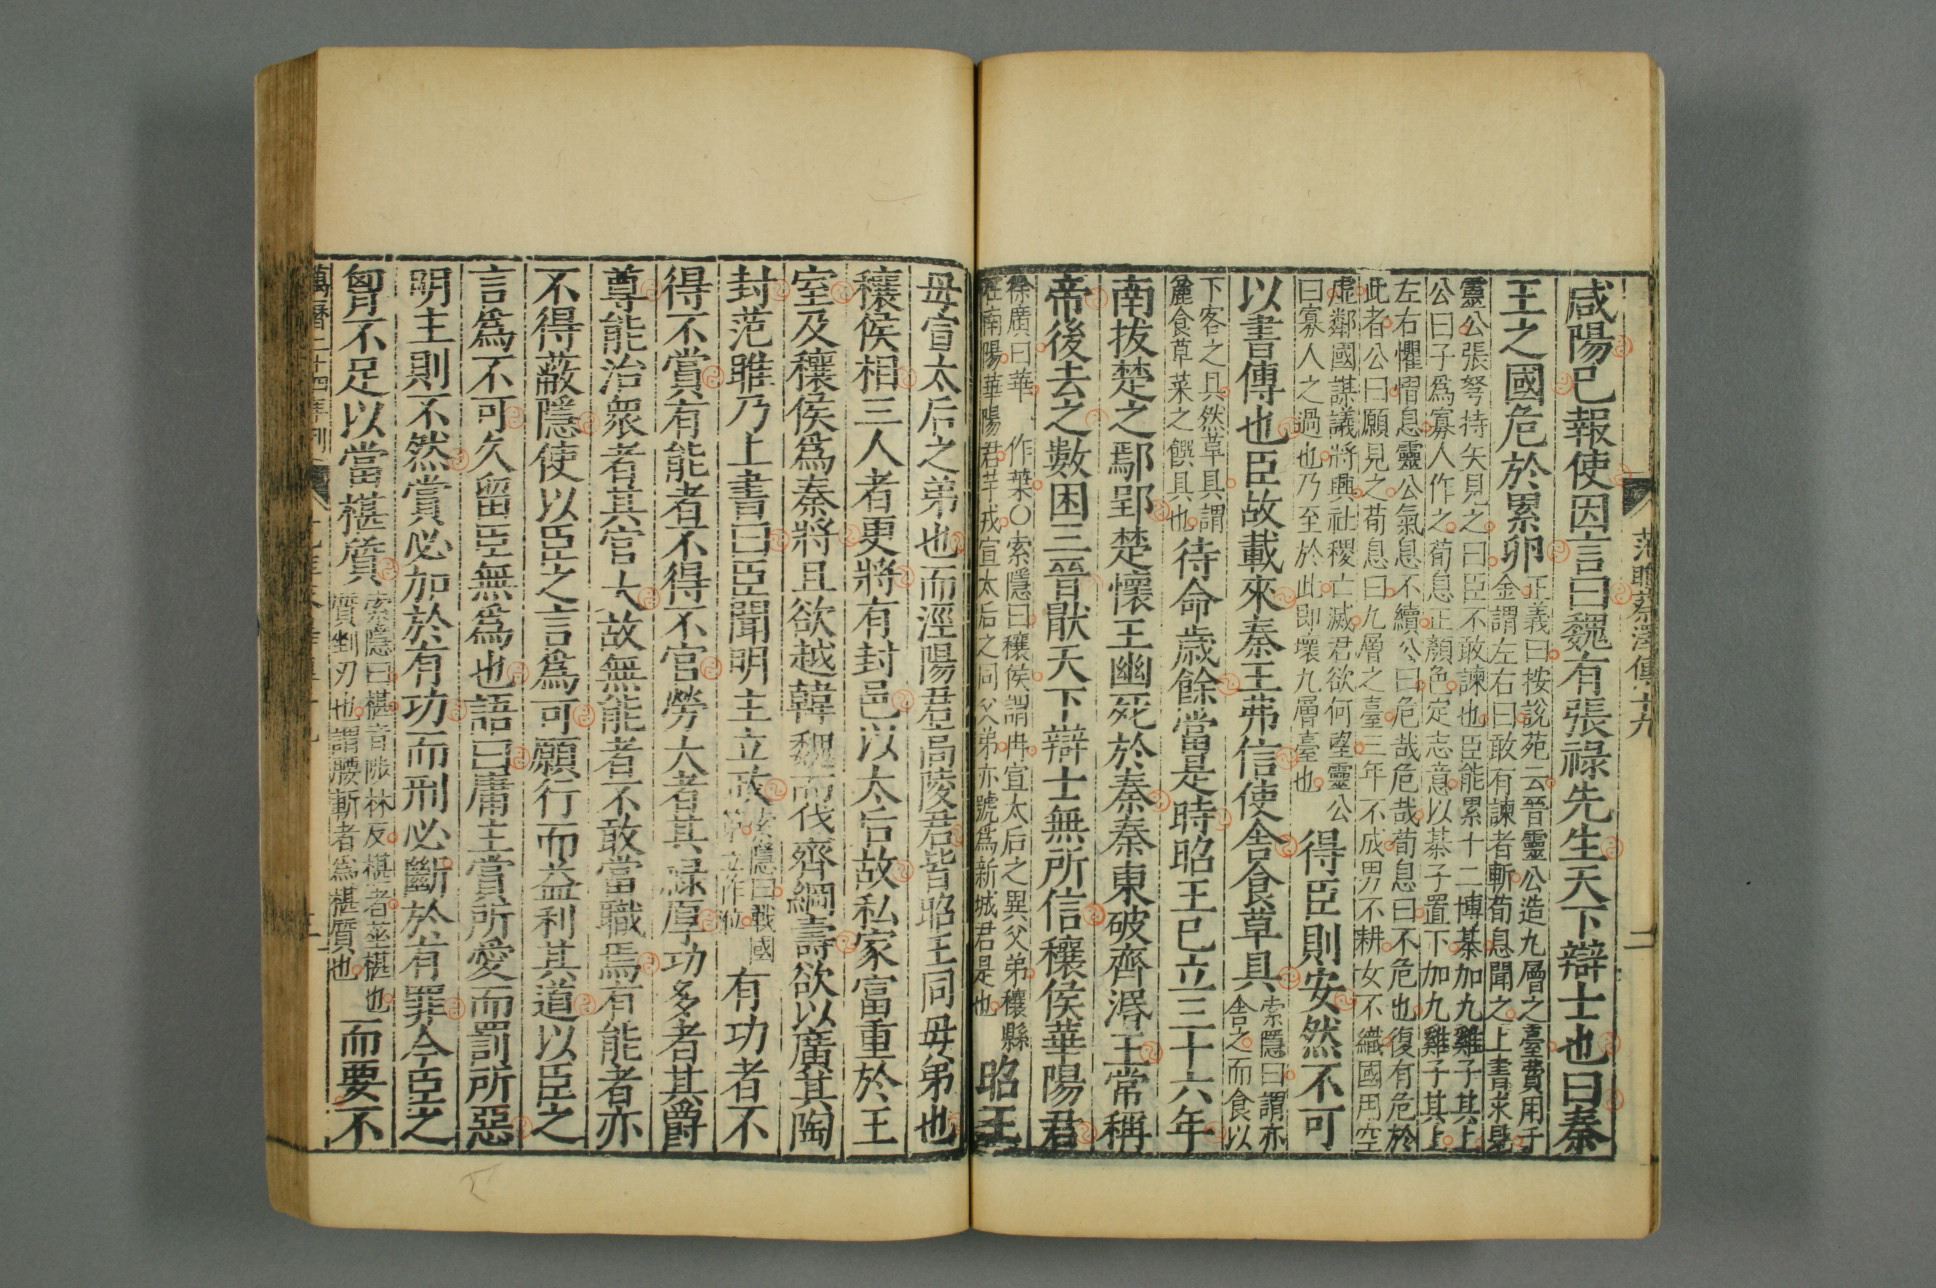 咸陽已報使因言曰魏有張祿先生天下辯士也曰秦
王之國危於累卵
正義曰按說苑云晉靈公造九層之臺費用千
金謂左右曰敢有諫者斬荀息聞之上書求見
靈公張弩持矢見之曰臣不敢諫也臣能累十二博棊加九雞子其上
公曰子爲寡人作之荀息正顏色定志意以棊子置下加九雞子其上
左右懼慴息靈公氣息不續公曰危哉危哉荀息曰不危也復有危於
此者公曰願見之荀息曰九層之臺三年不成男不耕女不織國用空
虛鄰國謀議將興社稷亡滅君欲何望靈公
曰寡人之過也乃至於此即壞九層臺也
得臣則安然不可
以書傳也臣故載來秦王弗信使舍食草具
索隱曰謂亦
舍之而食以
下客之具然草具謂
麄食草菜之饌具也
待命歲餘當是時昭王已立三十六年
南拔楚之鄢郢楚懷王幽死於秦秦東破齊湣王常稱
帝後去之數困三晉猒天下辯士無所信穰侯華陽君
徐廣曰華 作葉○索隱曰穰侯謂冉宣太后之異父弟穰縣
在南陽華陽君芊戎宣太后之同父弟亦號爲新城君是也
昭王
母宣太后之弟也而涇陽君高陵君皆昭王同母弟也
穰侯相三人者更將有封邑以太后故私家富重於王
室及穰侯爲秦將且欲越韓魏而伐齊綱壽欲以廣其陶
封范雎乃上書曰臣聞明主立政
索隱曰戰國
策立作位
有功者不
得不賞有能者不得不官勞大者其祿厚功多者其爵
尊能治衆者其官大故無能者不敢當職焉有能者亦
不得蔽隱使以臣之言爲可願行而益利其道以臣之
言爲不可久留臣無爲也語曰庸主賞所愛而罰所惡
明主則不然賞必加於有功而刑必斷於有罪今臣之
胷不足以當椹質
索隱曰椹音陟林反椹者莝椹也
質剉刃也謂腰斬者爲椹質也
而要不
范雎蔡澤傳十九
二
萬曆二十四年刊